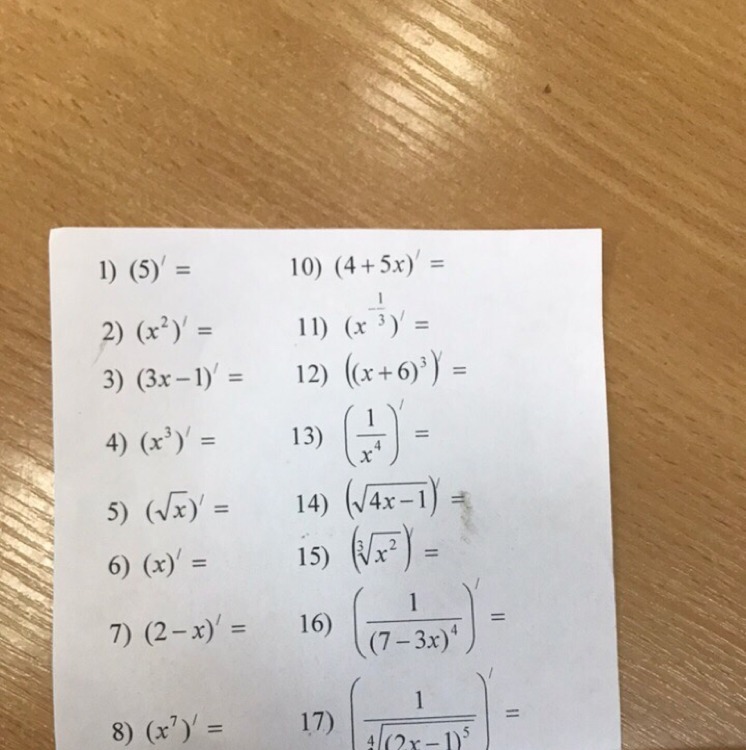 1) (5)′ =
2) (x²)′ =
3) (3x – 1)′ =
4) (x³)′ =
5) (√x)′ =
6) (x)′ =
7) (2 – x)′ =
8) (x⁷)′ =
10) (4 + 5x)′ =
11) (x^(-1/3))′ =
12) ((x + 6)³)′ =
13) (1/x⁴)′ =
14) (√(4x – 1))′ =
15) (∛(x²))′ =
16) (1/(7 – 3x)⁴)′ =
17) (1/∜((2x – 1)⁵))′ =